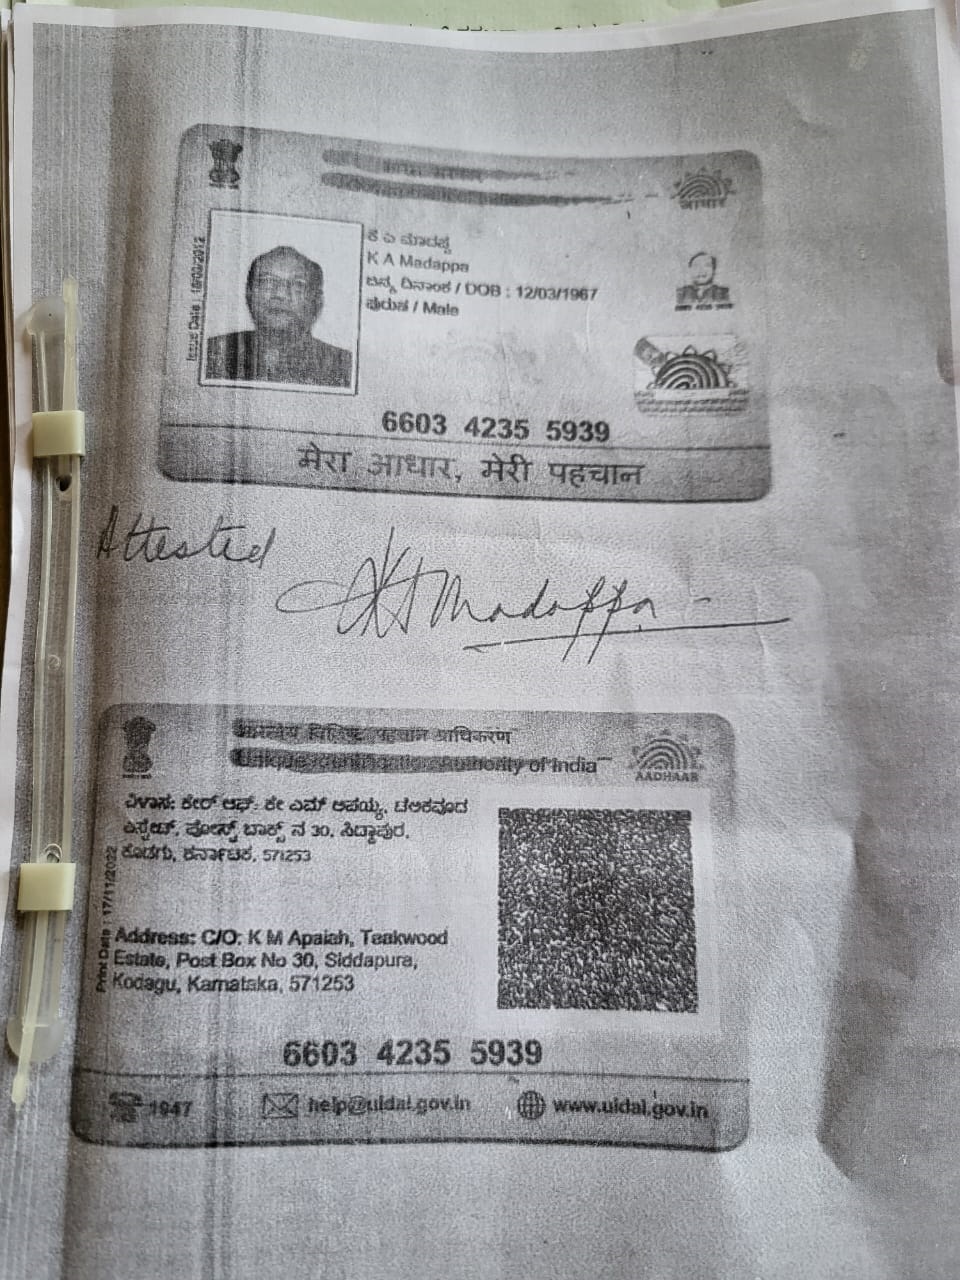 आधार
Issue Date : 18/09/2012
ಕೆ ಎ ಮಾದಪ್ಪ
K A Madappa
ಜನ್ಮ ದಿನಾಂಕ / DOB : 12/03/1967
ಪುರುಷ / Male
6603 4235 5939
मेरा आधार, मेरी पहचान
Attested
K A Madappa
भारतीय विशिष्ट पहचान प्राधिकरण
Unique Identification Authority of India
AADHAAR
ವಿಳಾಸ: ಕೇರ್ ಆಫ್: ಕೇ ಎಮ್ ಅಪಯ್ಯ,
ಎಸ್ಟೇಟ್, ಪೋಸ್ಟ್ ಬಾಕ್ಸ್ ನ 30, ಸಿದ್ದಾಪುರ,
ಕೊಡಗು, ಕರ್ನಾಟಕ, 571253
Print Date : 17/11/2022
Address: C/O: K M Apaiah, Teakwood
Estate, Post Box No 30, Siddapura,
Kodagu, Karnataka, 571253
6603 4235 5939
1947
help@uidai.gov.in
www.uidai.gov.in